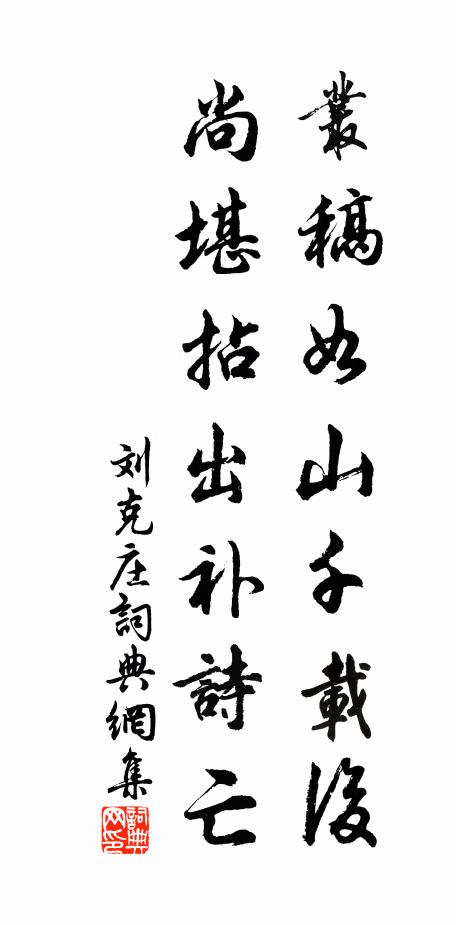 叢稿如山千載後
尚堪拈出补詩亡
刘克庄詞典網集
詞典
网印